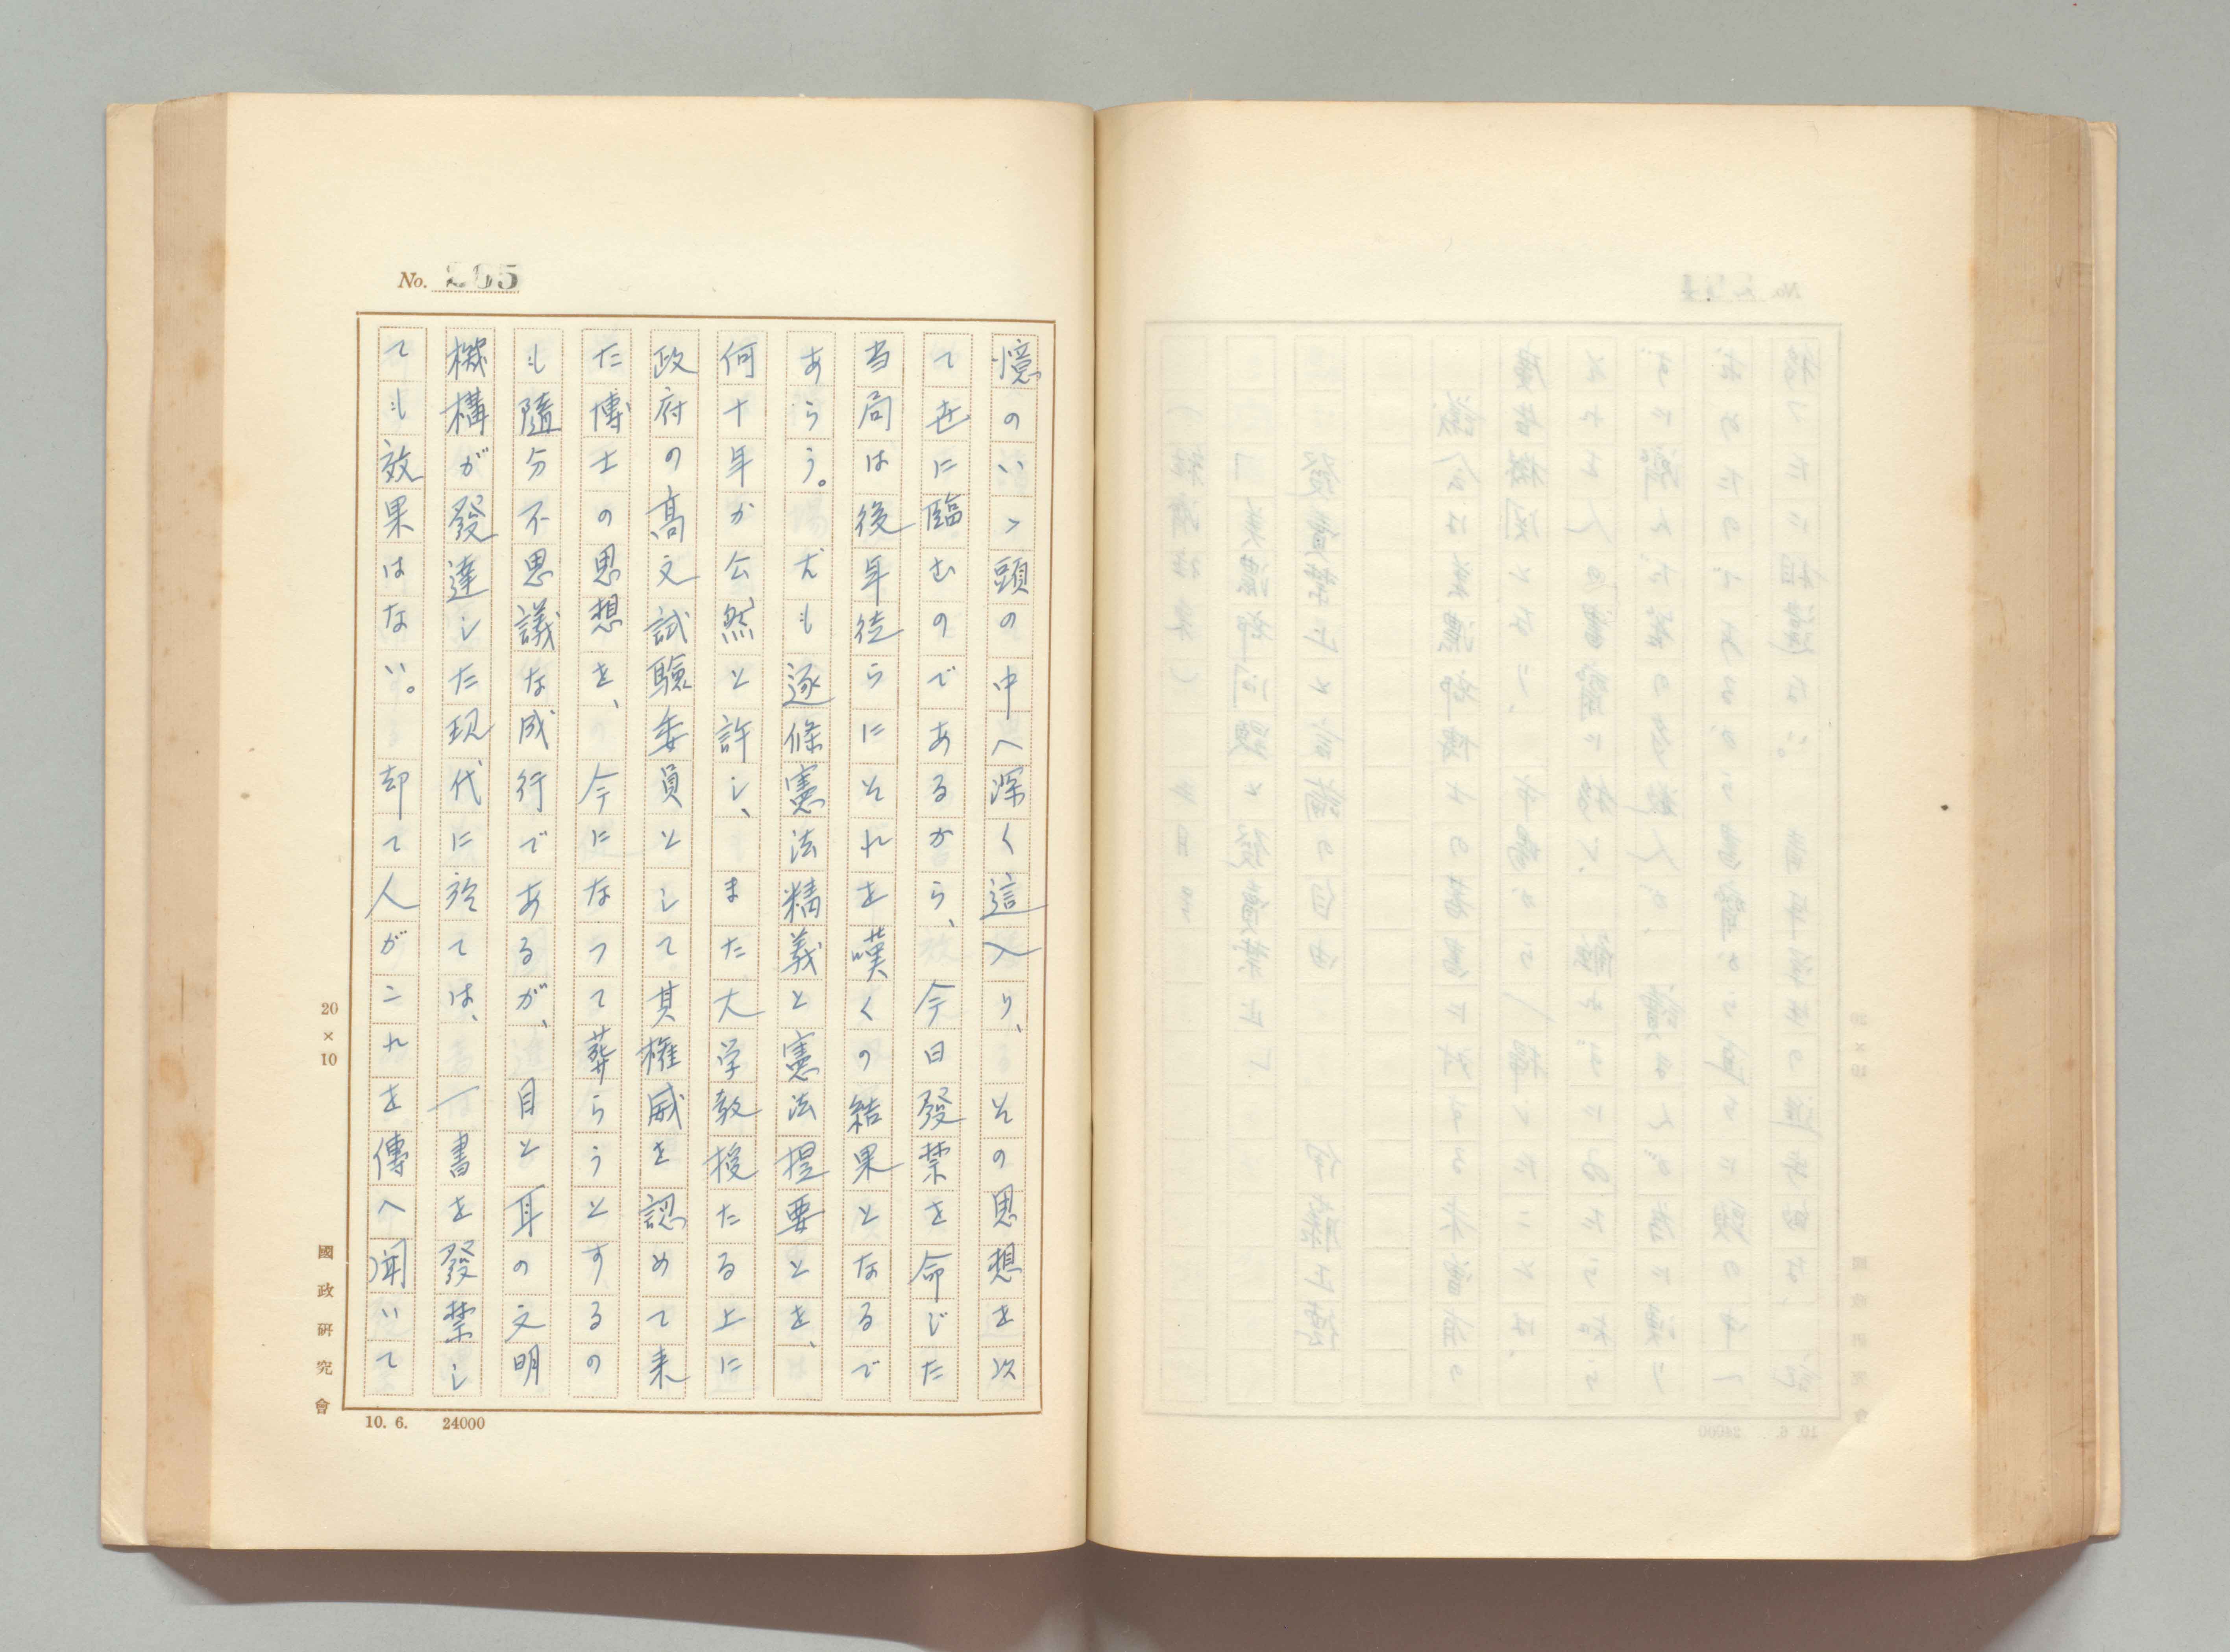 No. 265
憶のいゝ頭の中へ深く這入り、その思想を次
て世に臨むのであるから、今日發禁を命じた
当局は後年徒らにそれを嘆くの結果となるで
あらう。尤も逐條憲法精義と憲法提要とを、
何十年か公然と許し、また大学教授たる上に
政府の高文試驗委員として其権威を認めて来
た博士の思想を、今になつて葬らうとするの
も隨分不思議な成行であるが、目と耳の文明
機構が發達した現代に於ては、一書を發禁し
ても效果はない。却て人がこれを傳へ聞いて
20×10
國政研究會
10. 6. 24000